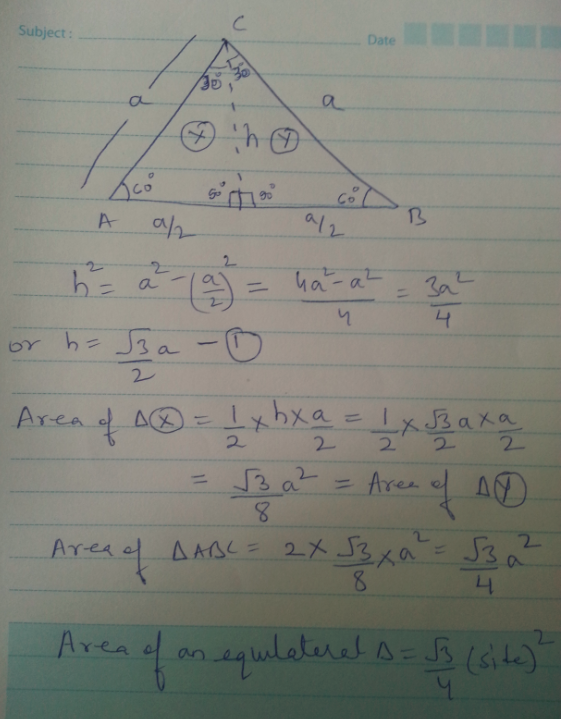 Subject :
Date
C
30° 30°
a
a
X h Y
60° 90° 90° 60°
A a/2 a/2 B
h² = a² - (a/2)² = (4a² - a²)/4 = 3a²/4
or h = √3a/2 - ①
Area of Δ Ⓧ = 1/2 × h × a/2 = 1/2 × √3a/2 × a/2
= √3a²/8 = Area of Δ Ⓨ
Area of ΔABC = 2 × √3/8 × a² = √3/4 a²
Area of an equilateral Δ = √3/4 (side)²